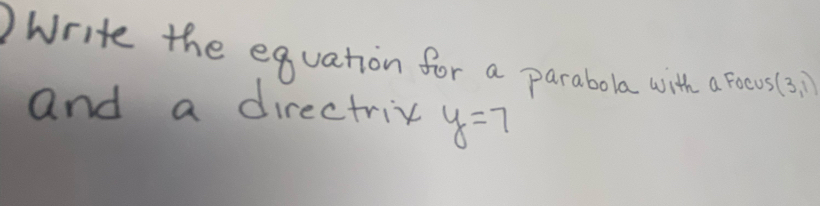 ) Write the equation for a parabola with a Focus(3,1)
and a directrix y=7